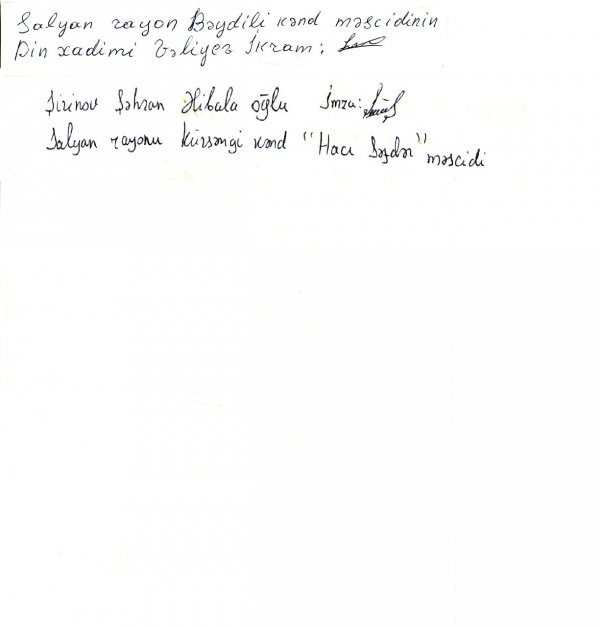 Salyan rayon Bəydili kənd məscidinin
Din xadimi Vəliyev İkram:
Şirinov Şəhran Əlibala oğlu İmza:
Salyan rayonu Kürsəngi kənd "Hacı Səfdər" məscidi